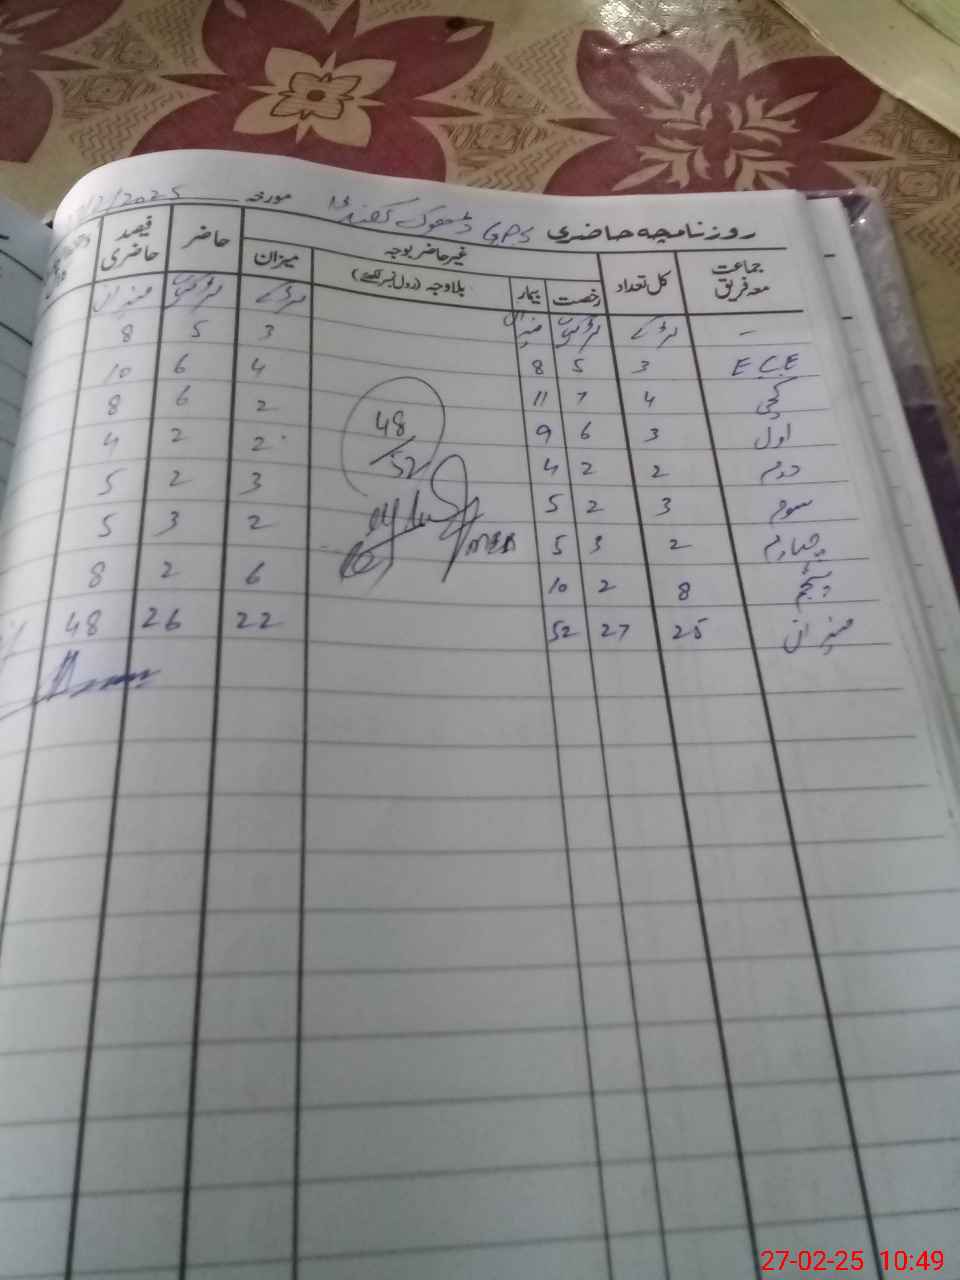 روزنامچہ حاضری GPS ڈھوک مورخہ /2/2025
جماعت معہ فریق کل تعداد غیر حاضر بوجہ میزان حاضر فیصد حاضری
رخصت بیمار بلاوجہ (رول نمبر لکھئے)
— لڑکے لڑکیاں میزان لڑکے لڑکیاں میزان
ECE 3 5 8 3 5 8
کچی 4 7 11 4 6 10
اول 3 6 9 2 6 8
دوم 2 2 4 2 2 4
سوم 3 2 5 3 2 5
چہارم 2 3 5 2 3 5
پنجم 8 2 10 6 2 8
میزان 25 27 52 22 26 48
48/52
MEA
27-02-25 10:49